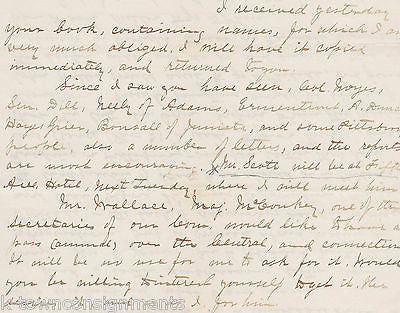 I received yesterday
your book, containing names, for which I am
very much obliged, I will have it copied
immediately, and returned to you.
Since I saw you have seen, Col Noyes,
Gen. Dill, Neely of Adams, Ermentrout, R. Bruce
Hays Grier, Bonsall of Juniata, and some Pittsburg
people, also a number of letters, and the reports
are most encouraging. Mr. Scott will be at Fifth
Ave. Hotel, next Tuesday, where I will meet him
Mr. Wallace, Maj. McConkey, one of the
secretaries of our Com, would like to have a
pass (annual) over the Central, and connections
It will be no use for me to ask for it. Would
you be willing to interest yourself to get it.
I for him
© k-townconsignments